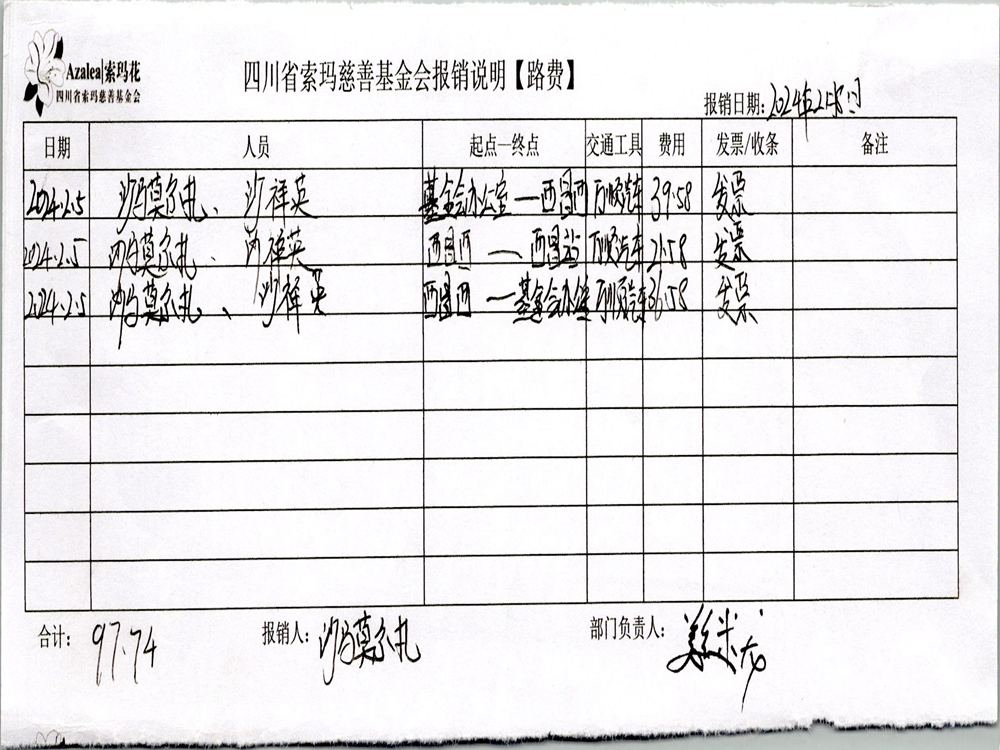 Azalea|索玛花
四川省索玛慈善基金会
四川省索玛慈善基金会报销说明【路费】
报销日期: 2024年2月5日
日期 人员 起点—终点 交通工具 费用 发票/收条 备注
2024.2.5 沙马莫尔扎、沙祥英 基金会办公室—西昌西 万顺汽车 39.58 发票
2024.2.5 沙马莫尔扎、沙祥英 西昌西—西昌站 万顺汽车 21.58 发票
2024.2.5 沙马莫尔扎、沙祥英 西昌西—基金会办公室 万顺汽车 36.58 发票
合计: 97.74 报销人: 沙马莫尔扎 部门负责人: